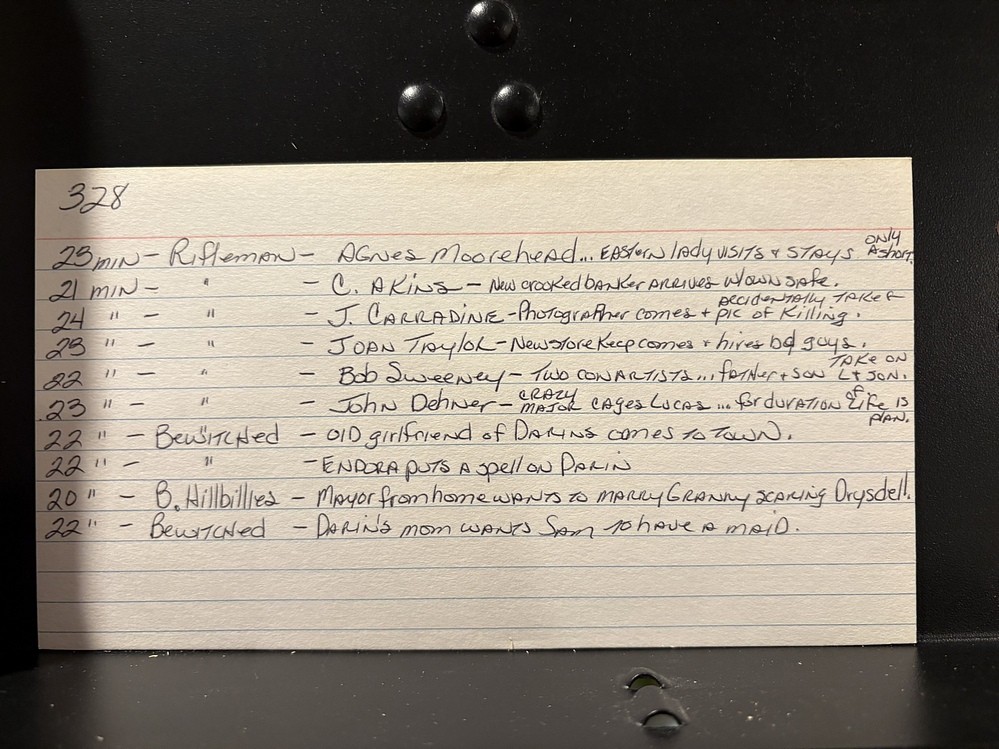 328
23 min - Rifleman - Agnes Moorehead... Eastern lady visits & stays only a short.
21 min - " - C. Akins - New crooked banker arrives w/own safe.
24 " - " - J. Carradine - Photographer comes + accidentally takes pic of killing.
23 " - " - Joan Taylor - New storekeep comes + hires bd guys.
22 " - " - Bob Sweeney - Two con artists... father + son take on L + son.
23 " - " - John Dehner - crazy major cages Lucas... for duration of life is plan.
22 " - Bewitched - old girlfriend of Darins comes to town.
22 " - " - Endora puts a spell on Darin
20 " - B. Hillbillies - Mayor from home wants to marry Granny scaring Drysdell.
22 " - Bewitched - Darin's mom wants Sam to have a maid.